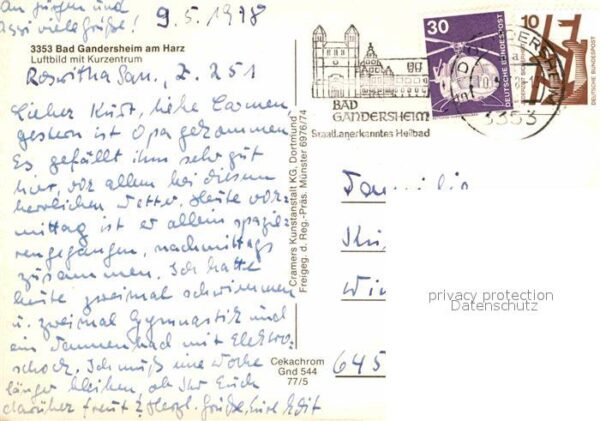 An Jürgen und
Assi viele Grüße!
9.5.1978
3353 Bad Gandersheim am Harz
Luftbild mit Kurzentrum
Roswitha San., Z. 251
Lieber Kurt, liebe Carmen,
gestern ist Opa gekommen
Es gefällt ihm sehr gut
hier, vor allem bei diesem
herrlichen Wetter. Heute vor-
mittag ist er allein spazie-
rengegangen, nachmittags
zusammen. Ich hatte
heute zweimal schwimmen
u. zweimal Gymnastik und
ein Tannenbad mit Elektro-
schock. Ich muß eine Woche
länger bleiben, ob Ihr Euch
darüber freut? Herzl. Grüße, Eure Edit
Cramers Kunstanstalt KG, Dortmund
Freigeg. d. Reg.-Präs. Münster 6976/74
Cekachrom
Gnd 544
77/5
BAD
GANDERSHEIM
Staatl. anerkanntes Heilbad
30
DEUTSCHE BUNDESPOST
10
DEUTSCHE BUNDESPOST
3353
Familie
645
privacy protection
Datenschutz